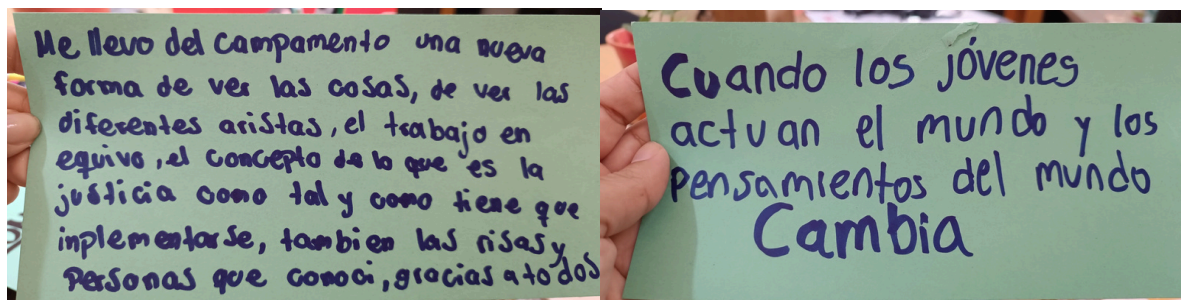 Me llevo del campamento una nueva
forma de ver las cosas, de ver las
diferentes aristas, el trabajo en
equivo, el concepto de lo que es la
justicia como tal y como tiene que
inplementarse, tambien las risas y
personas que conoci, gracias a todos
Cuando los jóvenes
actuan el mundo y los
pensamientos del mundo
Cambia